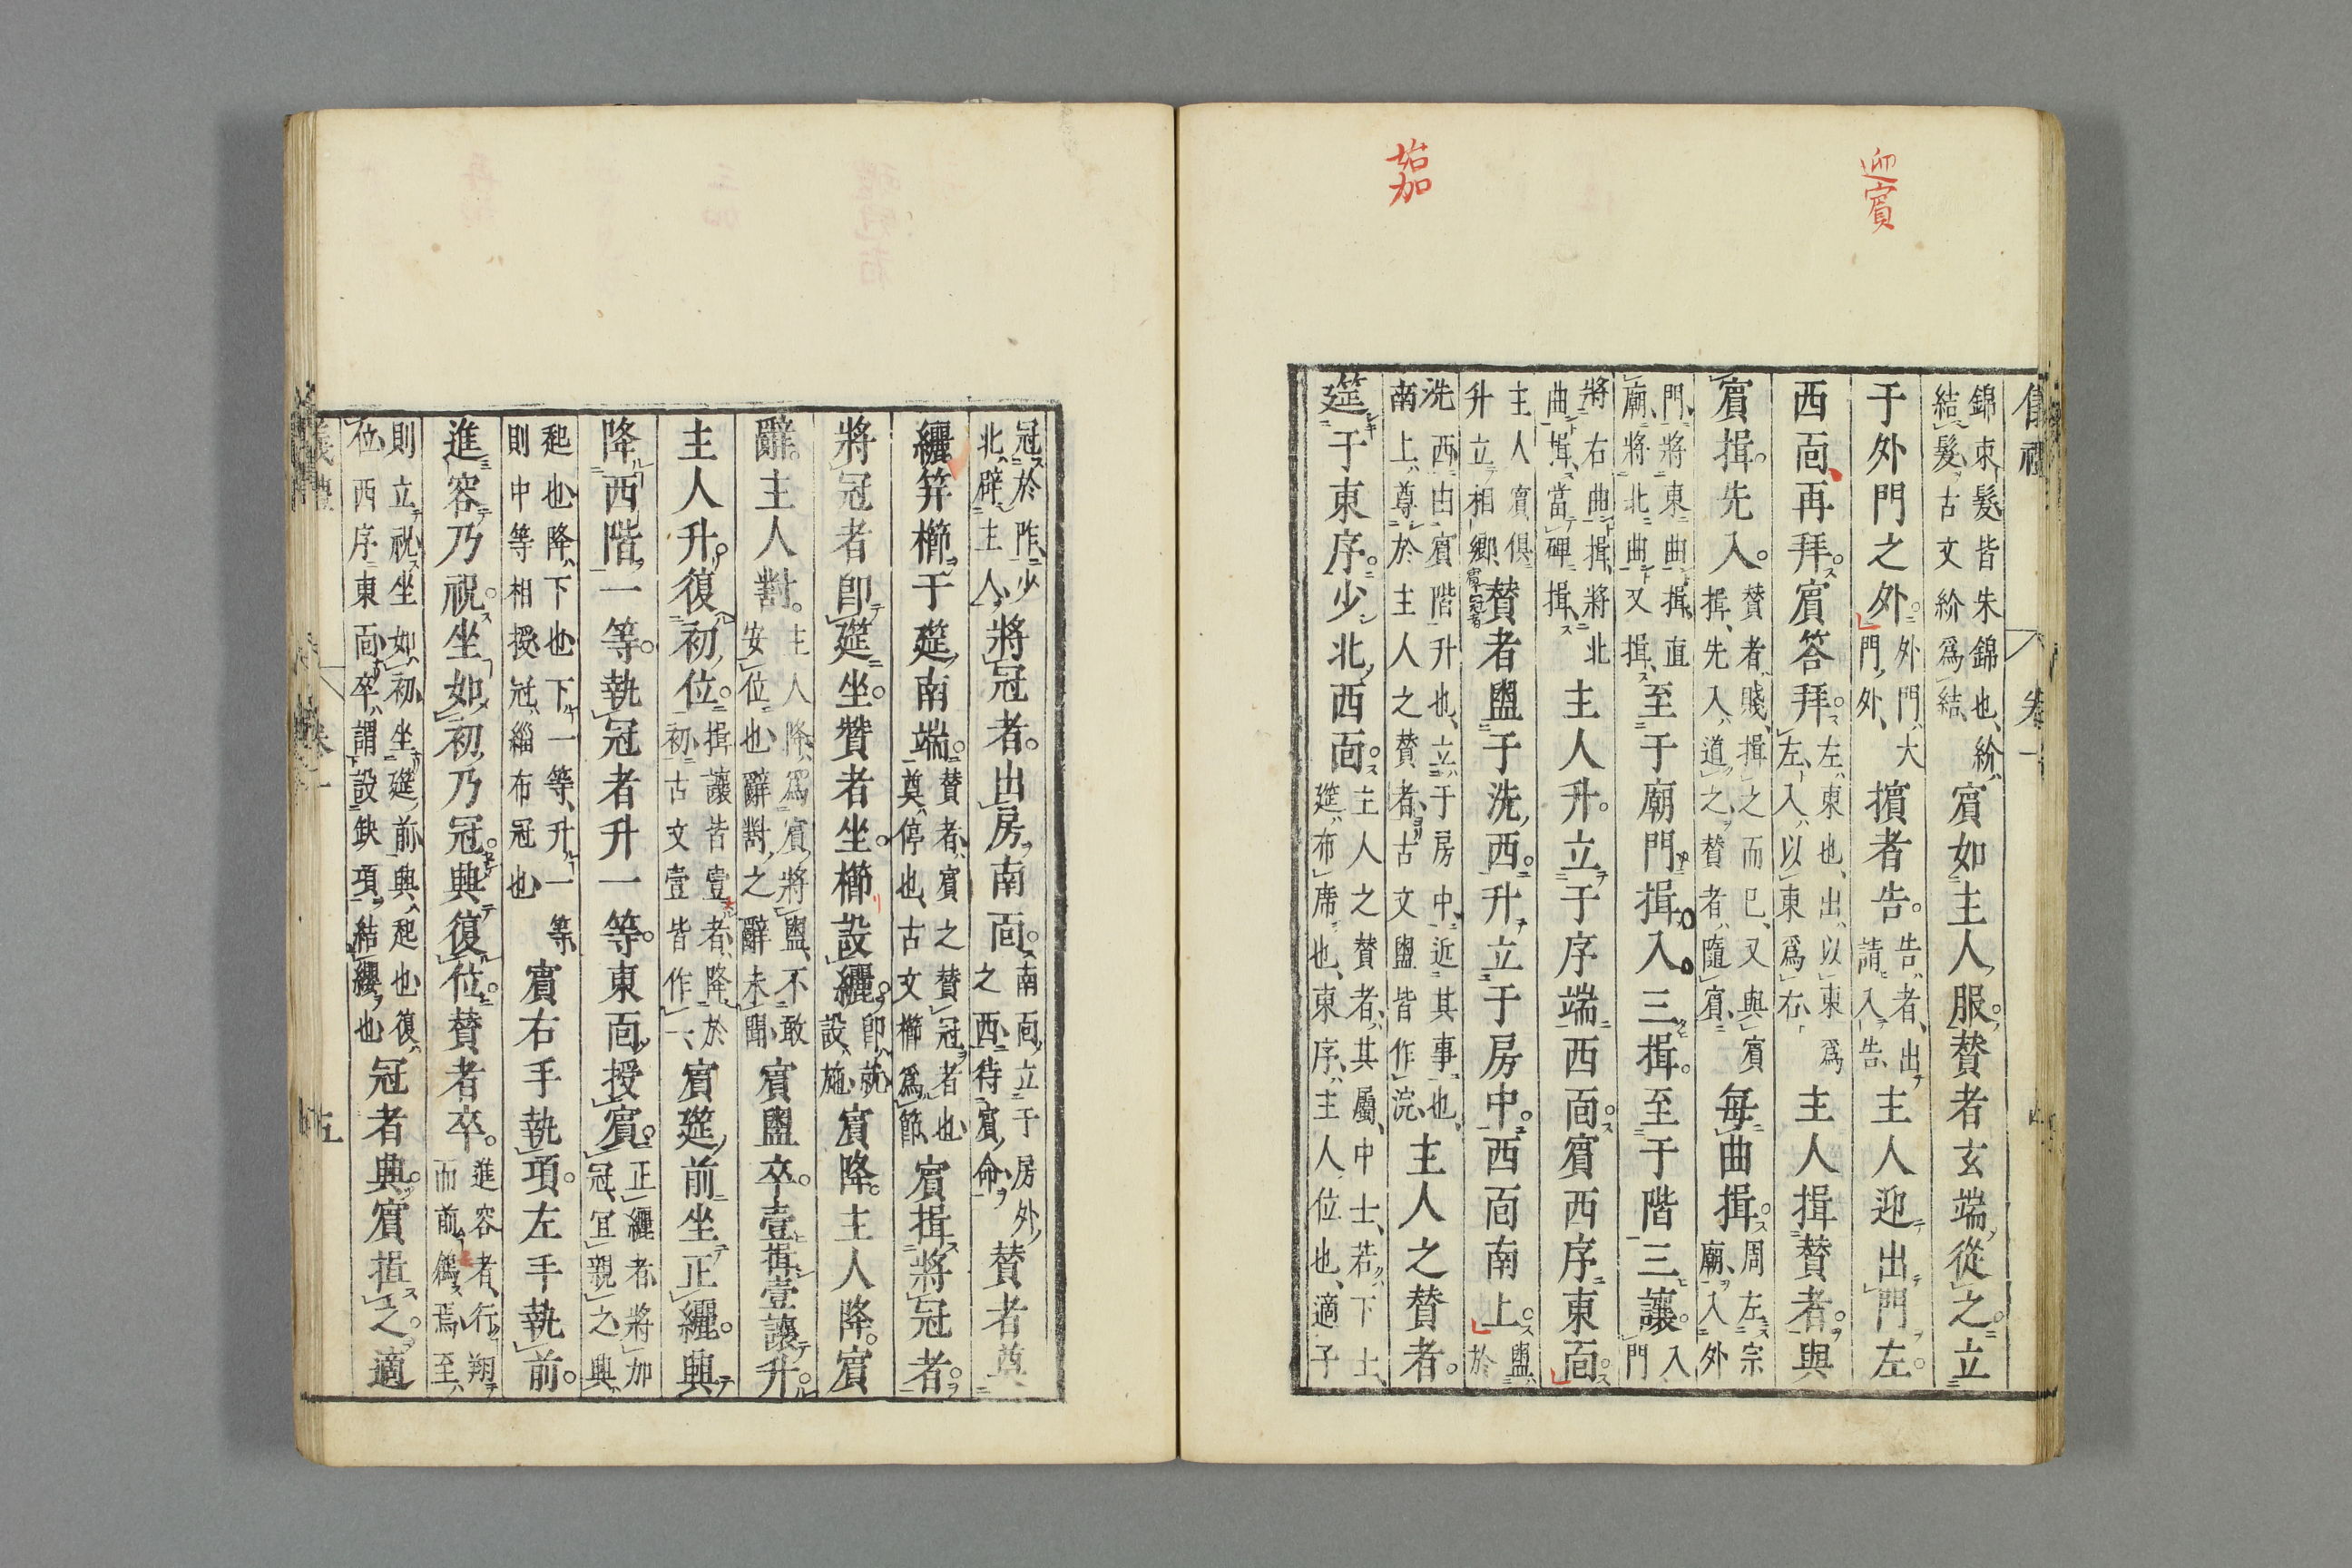 迎賓
始加
儀禮 卷一
錦束髮皆朱錦也紒
結髮古文紒爲結
賓如主人服贊者玄端從之立
于外門之外
外門大
門外
擯者告
告者出
請入告
主人迎出門左
西面再拜賓答拜
左東也出以東爲
左入以東爲右
主人揖贊者與
賓揖先入
贊者賤揖之而已又與賓
揖先入道之贊者隨賓
每曲揖
周左宗
廟入外
門將東曲揖直
廟將北曲又揖
至于廟門揖入三揖至于階三讓
入
門
將右曲揖將北
曲揖當碑揖
主人升立于序端西面賓西序東面
主人賓俱
升立相鄉
贊者盥于洗西升立于房中西面南上
盥
於
洗西由賓階升也立于房中近其事也
南上尊於主人之贊者古文盥皆作浣
主人之贊者
筵于東序少北西面
主人之贊者其屬中士若下士
筵布席也東序主人位也適子
冠於阼少
北辟主人
將冠者出房南面
南面立于房外
之西待賓命
贊者奠
纚笄櫛于筵南端
贊者賓之贊冠者也
奠停也古文櫛爲節
賓揖將冠者
將冠者即筵坐贊者坐櫛設纚
即就
設施
賓降主人降賓
辭主人對
主人降爲賓將盥不敢
安位也辭對之辭未聞
賓盥卒壹揖壹讓升
主人升復初位
揖讓皆壹者降於
初古文壹皆作一
賓筵前坐正纚興
降西階一等執冠者升一等東面授賓
正纚者將加
冠宜親之興
起也降下也下一等升一等
則中等相授冠緇布冠也
賓右手執項左手執前
進容乃祝坐如初乃冠興復位贊者卒
進容者行翔
而前鶬焉至
則立祝坐如初坐筵前興起也復
位西序東面卒謂設缺項結纓也
冠者興賓揖之適
五